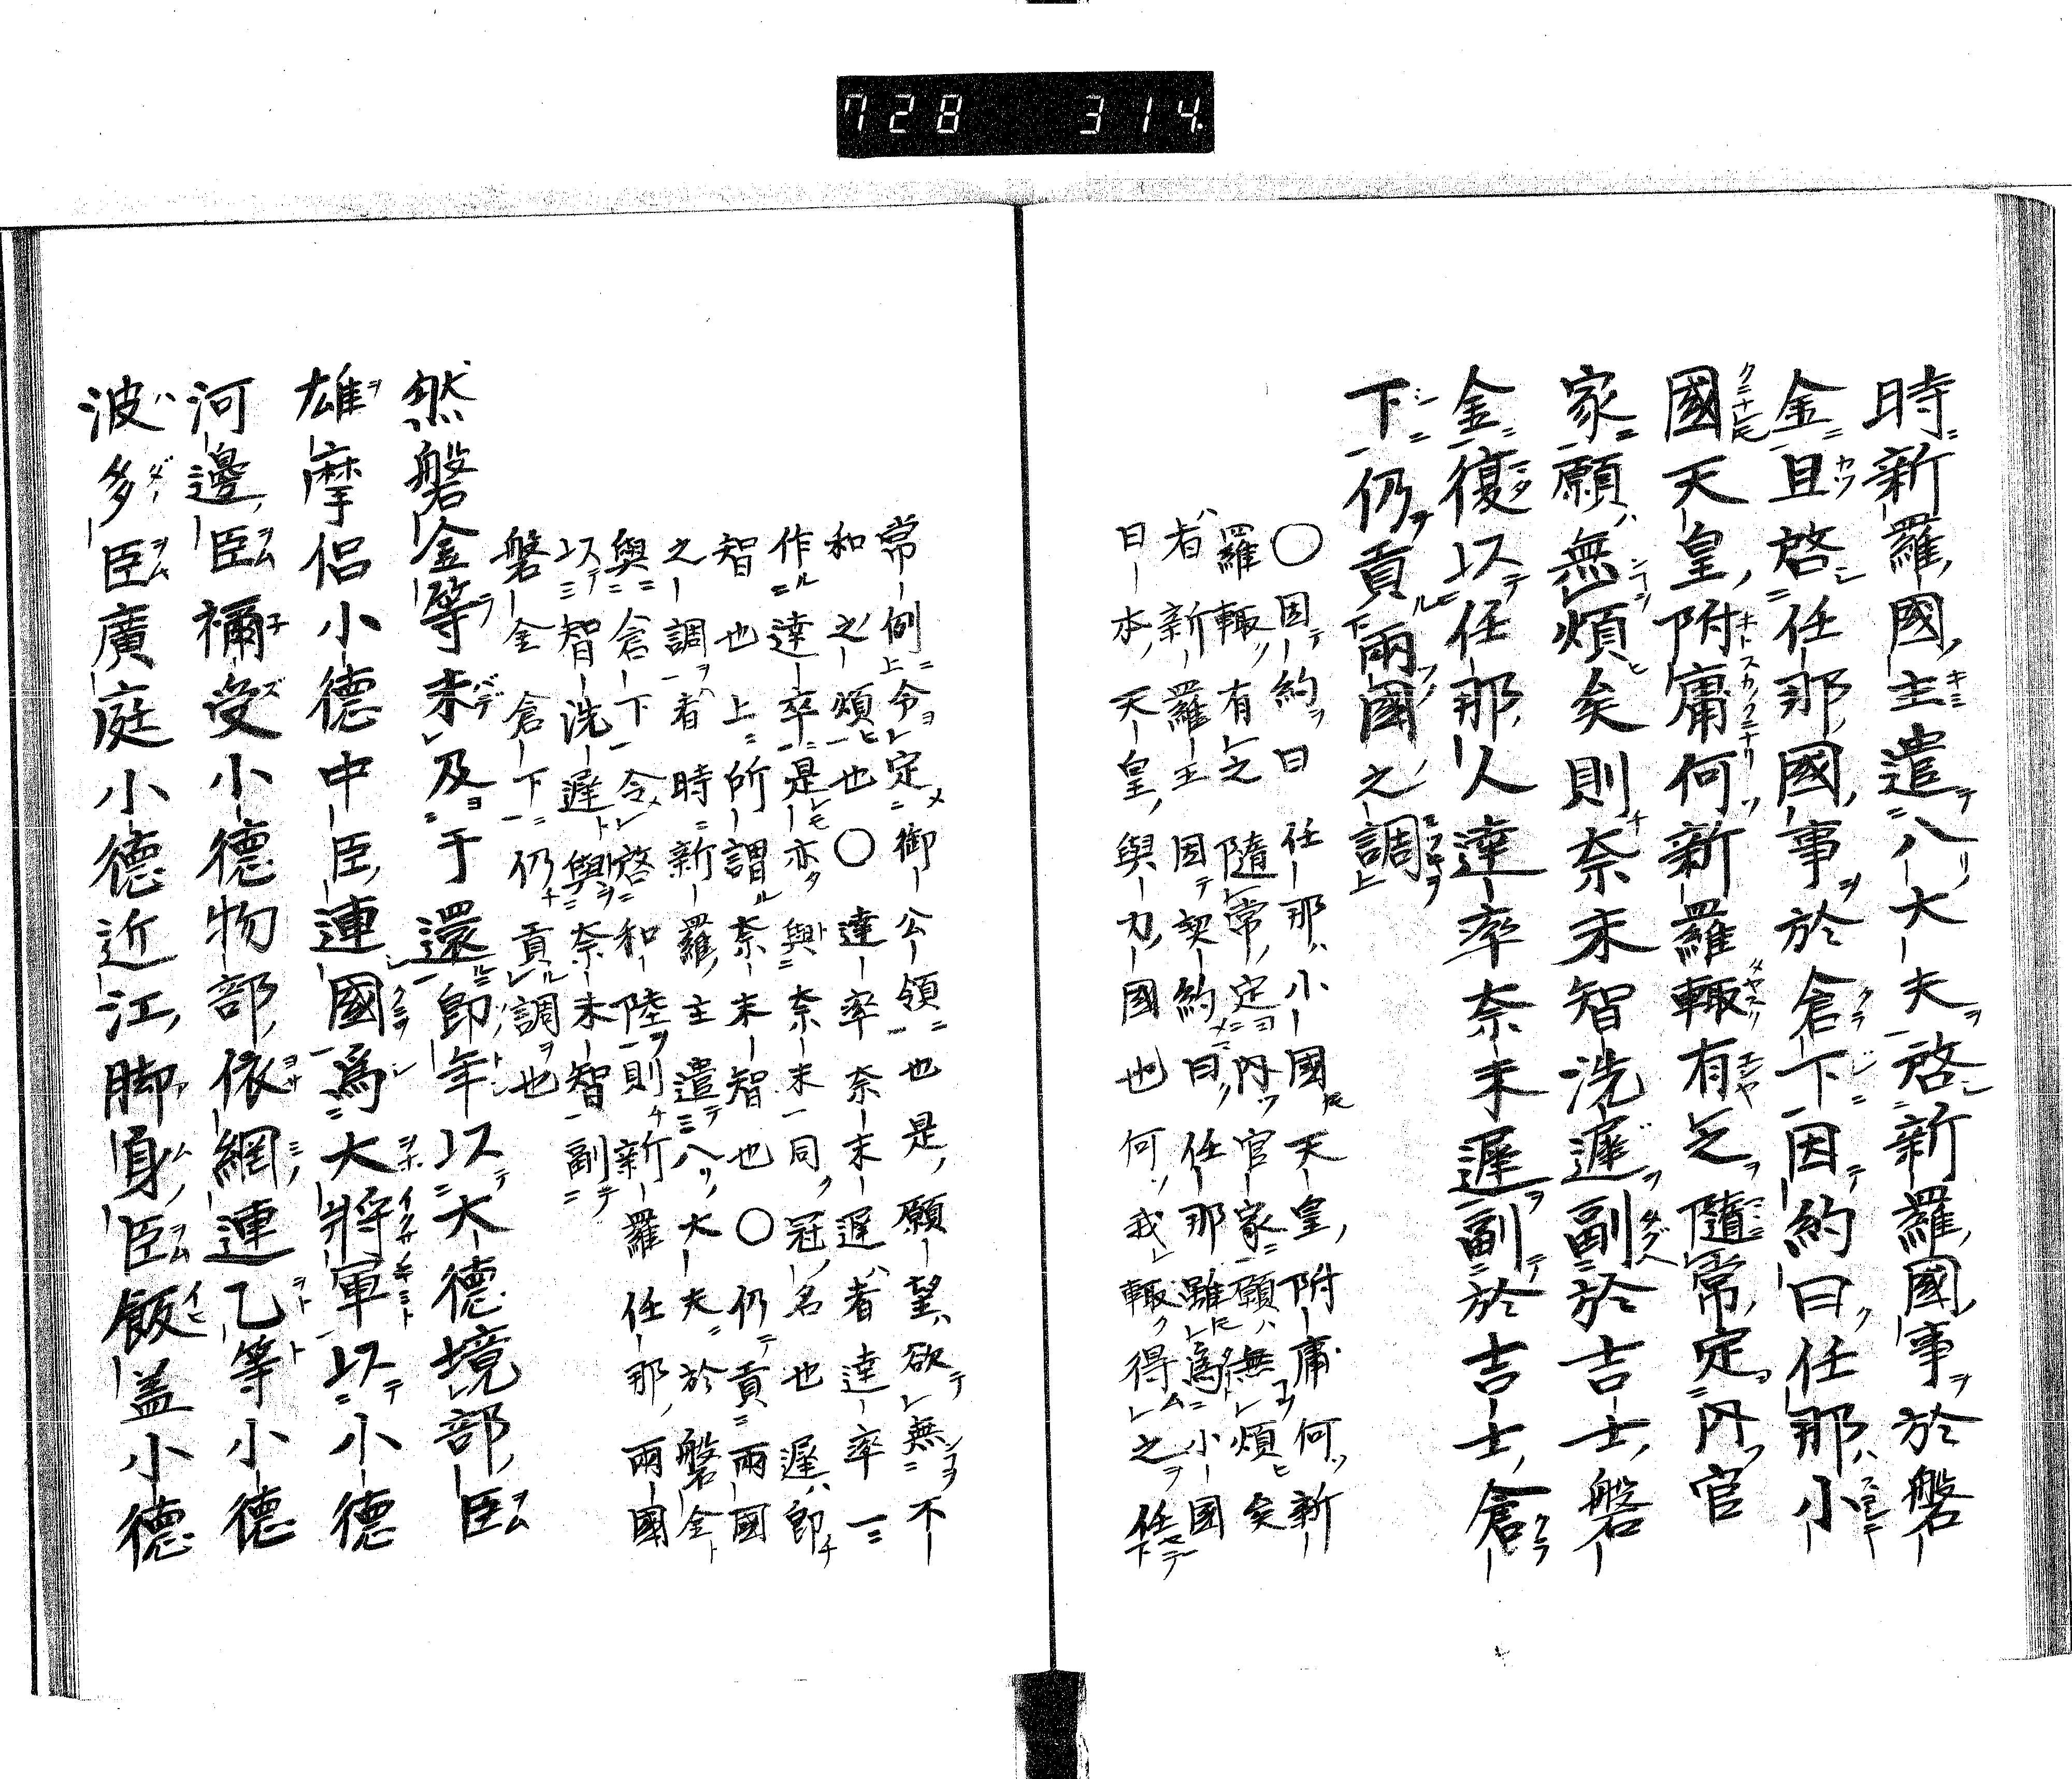 728 314
時新羅國主遣八大夫啓新羅國事於磐
金且啓任那國事於倉下因約曰任那小
國天皇附庸何新羅輙有之隨常定內官
家願無煩矣則奈末智洗遲副於吉士磐
金復以任那人達率奈末遲副於吉士倉
下仍貢兩國之調
〇因約曰任那小國天皇附庸何新
羅輙有之隨常定內官家願無煩矣
者新羅王因契約曰任那雖爲小國
日本天皇與力國也何我輙得之任
常例令定御公領也是願望欲無不
和之煩也〇達率奈末遲者達率一
作達卒是亦與奈末同冠名也遲即
智也上所謂奈末智也〇仍貢兩國
之調者時新羅主遣八大夫於磐金
與倉下令啓和陸則新羅任那兩國
以智洗遲與奈末智副
磐金倉下仍貢調也
然磐金等未及于還即年以大德境部臣
雄摩侶小德中臣連國爲大將軍以小德
河邊臣禰受小德物部依網連乙等小德
波多臣廣庭小德近江脚身臣飯盖小德